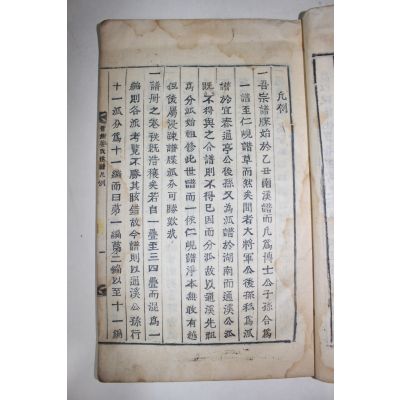 凡例
一吾宗譜牒始於乙丑南溪譜而凡爲博士公子孫合爲
一譜至仁峴譜草而然矣間者大將軍公後孫私爲派
譜於宜春通亭公後孫又爲派譜於湖南而通溪公派
旣不得與之合譜則不得已因而分派故以通溪先祖
爲分派始祖修此世譜而一依仁峴譜淨本無敢有越
但後屬浸疎譜牒派分可勝歎哉
一譜冊之卷秩旣浩穰矣若自一疊至三四疊而混爲一
編則各派考覽不勝其眩錯故今譜則以通溪公孫行
十一派分爲十一編而曰第一編第二編以至十一編
氏族譜凡例
一